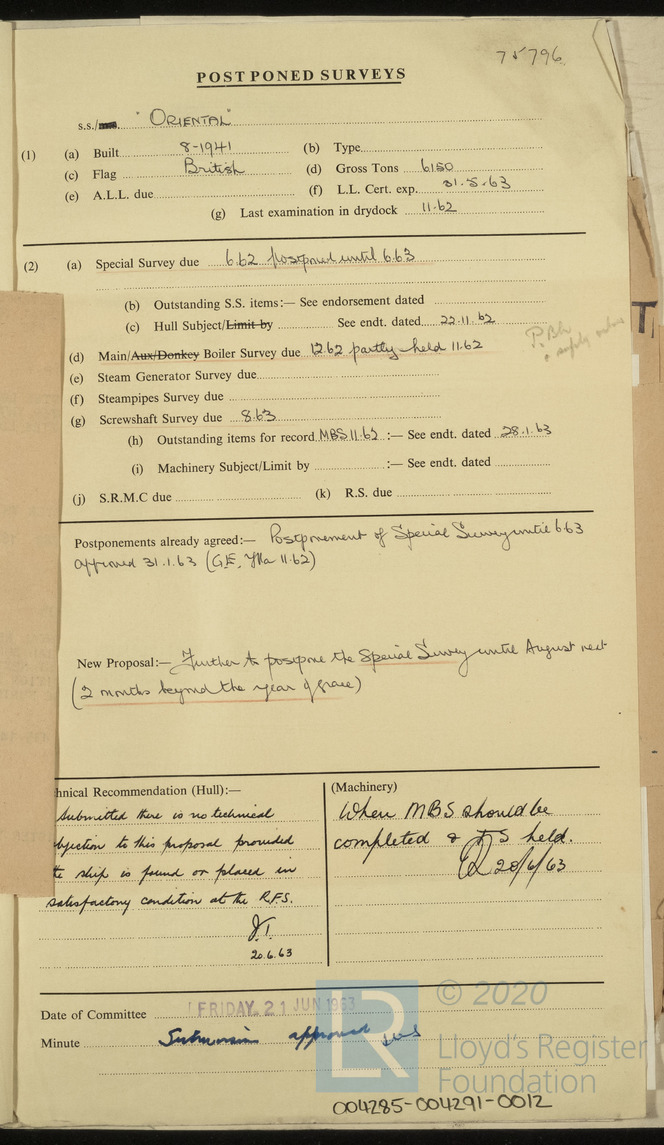 75796
POSTPONED SURVEYS
s.s./ "ORIENTAL"
(1) (a) Built 8-1941 (b) Type
(c) Flag British (d) Gross Tons 6150
(e) A.L.L. due (f) L.L. Cert. exp. 31.5.63
(g) Last examination in drydock 11.62
(2) (a) Special Survey due 6.62 postponed until 6.63
(b) Outstanding S.S. items:— See endorsement dated
(c) Hull Subject/Limit by See endt. dated 22.11.62
(d) Main/Aux/Donkey Boiler Survey due 12.62 partly held 11.62
(e) Steam Generator Survey due
(f) Steampipes Survey due
(g) Screwshaft Survey due 8.63
(h) Outstanding items for record MBS 11.62 :— See endt. dated 28.1.63
(i) Machinery Subject/Limit by :— See endt. dated
(j) S.R.M.C due (k) R.S. due
Postponements already agreed:— Postponement of Special Survey until 6.63
approved 31.1.63 (G.E. 11.62)
New Proposal:— Further to postpone the Special Survey until August next
(2 months beyond the year of grace)
hnical Recommendation (Hull):—
Submitted there is no technical
bjection to this proposal provided
ship is found or placed in
satisfactory condition at the R.F.S.
20.6.63
(Machinery)
When MBS should be
completed & TS held.
20/6/63
Date of Committee FRIDAY. 21 JUN 1963
Minute Submission approved
LR
© 2020
Lloyd's Register
Foundation
004285-004291-0012
T